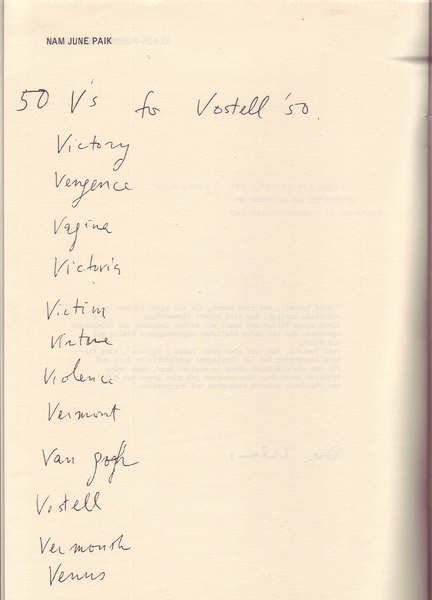 NAM JUNE PAIK
50 V's for Vostell '50.
Victory
Vengence
Vagina
Victoria
Victim
Virtue
Violence
Vermont
Van gogh
Vostell
Vermouth
Venus